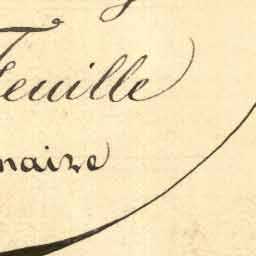 Feuille
maire